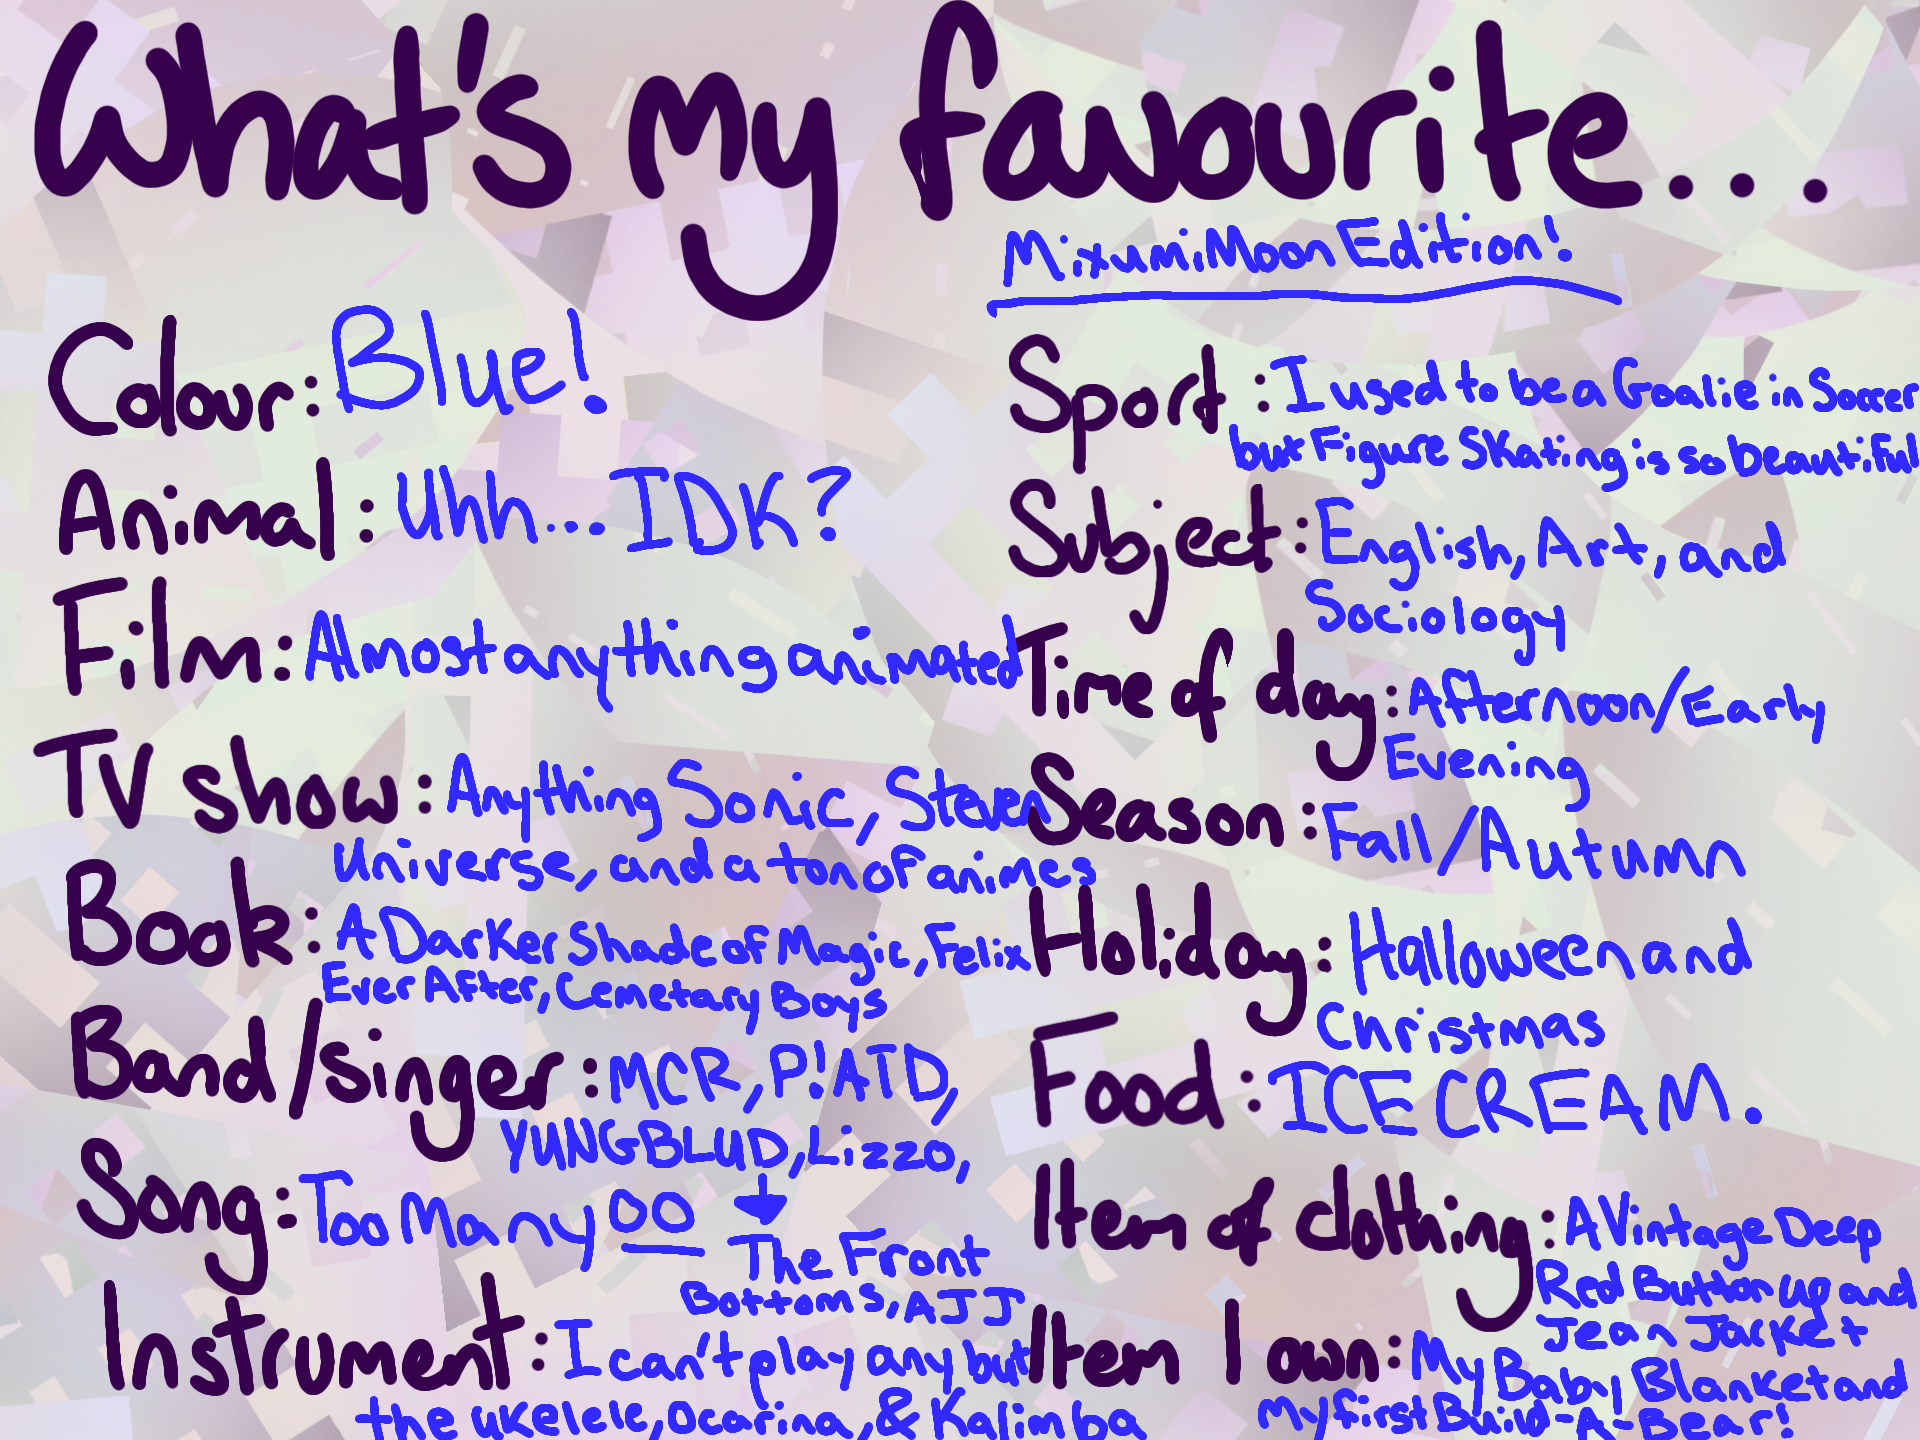 What's my favourite...
MixumiMoon Edition!
Colour: Blue!
Animal: Uhh... IDK?
Film: Almost anything animated
TV show: Anything Sonic, Steven
Universe, and a ton of animes
Book: A Darker Shade of Magic, Felix
Ever After, Cemetary Boys
Band/singer: MCR, P!ATD,
YUNGBLUD, Lizzo,
The Front
Bottoms, AJJ
Song: Too Many OO
Instrument: I can't play any but
the ukelele, Ocarina, & Kalimba
Sport: I used to be a Goalie in Soccer
but Figure Skating is so beautiful
Subject: English, Art, and
Sociology
Time of day: Afternoon/Early
Evening
Season: Fall/Autumn
Holiday: Halloween and
Christmas
Food: ICE CREAM.
Item of clothing: A Vintage Deep
Red Button up and
Jean Jacket
Item I own: My Baby Blanket and
My first Build-A-Bear!